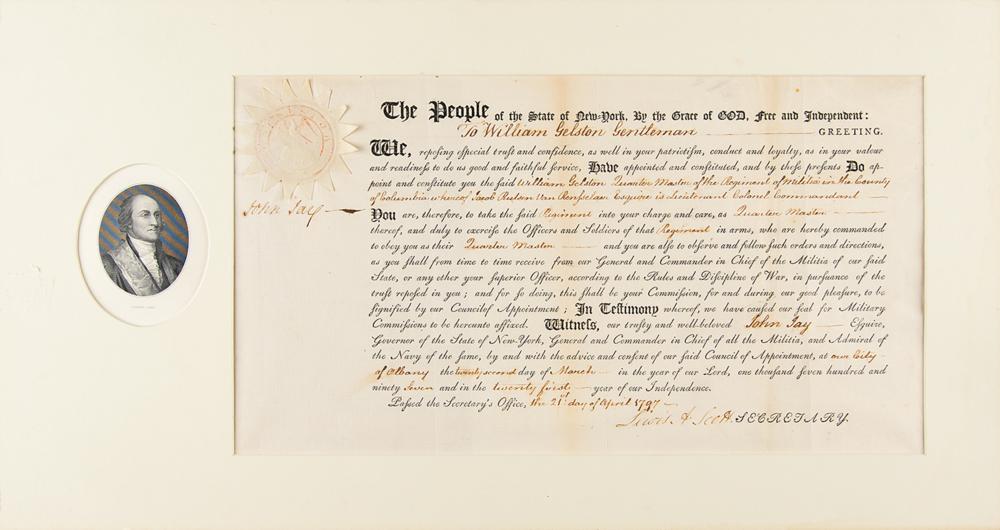 The People of the State of New-York, By the Grace of GOD, Free and Independent:
To William Gelston Gentleman GREETING.
We, repoſing eſpecial truſt and confidence, as well in your patriotiſm, conduct and loyalty, as in your valour
and readineſs to do us good and faithful ſervice, Have appointed and conſtituted, and by theſe preſents Do ap-
point and conſtitute you the ſaid William Gelston Quarter Master of the Regiment of Militia in the County
of Columbia whereof Jacob Rutsen Van Rensselaer Esquire is Lieutenant Colonel Commandant
John Jay
You are, therefore, to take the ſaid Regiment into your charge and care, as Quarter Master
thereof, and duly to exerciſe the Officers and Soldiers of that Regiment in arms, who are hereby commanded
to obey you as their Quarter Master and you are alſo to obſerve and follow ſuch orders and directions,
as you ſhall from time to time receive from our General and Commander in Chief of the Militia of our ſaid
State, or any other your Superior Officer, according to the Rules and Diſcipline of War, in purſuance of the
truſt repoſed in you; and for ſo doing, this ſhall be your Commiſſion, for and during our good pleaſure, to be
ſignified by our Council of Appointment; In Teſtimony whereof, we have cauſed our ſeal for Military
Commiſſions to be hereunto affixed. Witneſs, our truſty and well-beloved John Jay Eſquire,
Governor of the State of New-York, General and Commander in Chief of all the Militia, and Admiral of
the Navy of the ſame, by and with the advice and conſent of our ſaid Council of Appointment, at our City
of Albany the twenty second day of March in the year of our Lord, one thouſand ſeven hundred and
ninety Seven and in the twenty first year of our Independence.
Paſſed the Secretary's Office, the 21st day of April 1797
Lewis A. Scott SECRETARY.